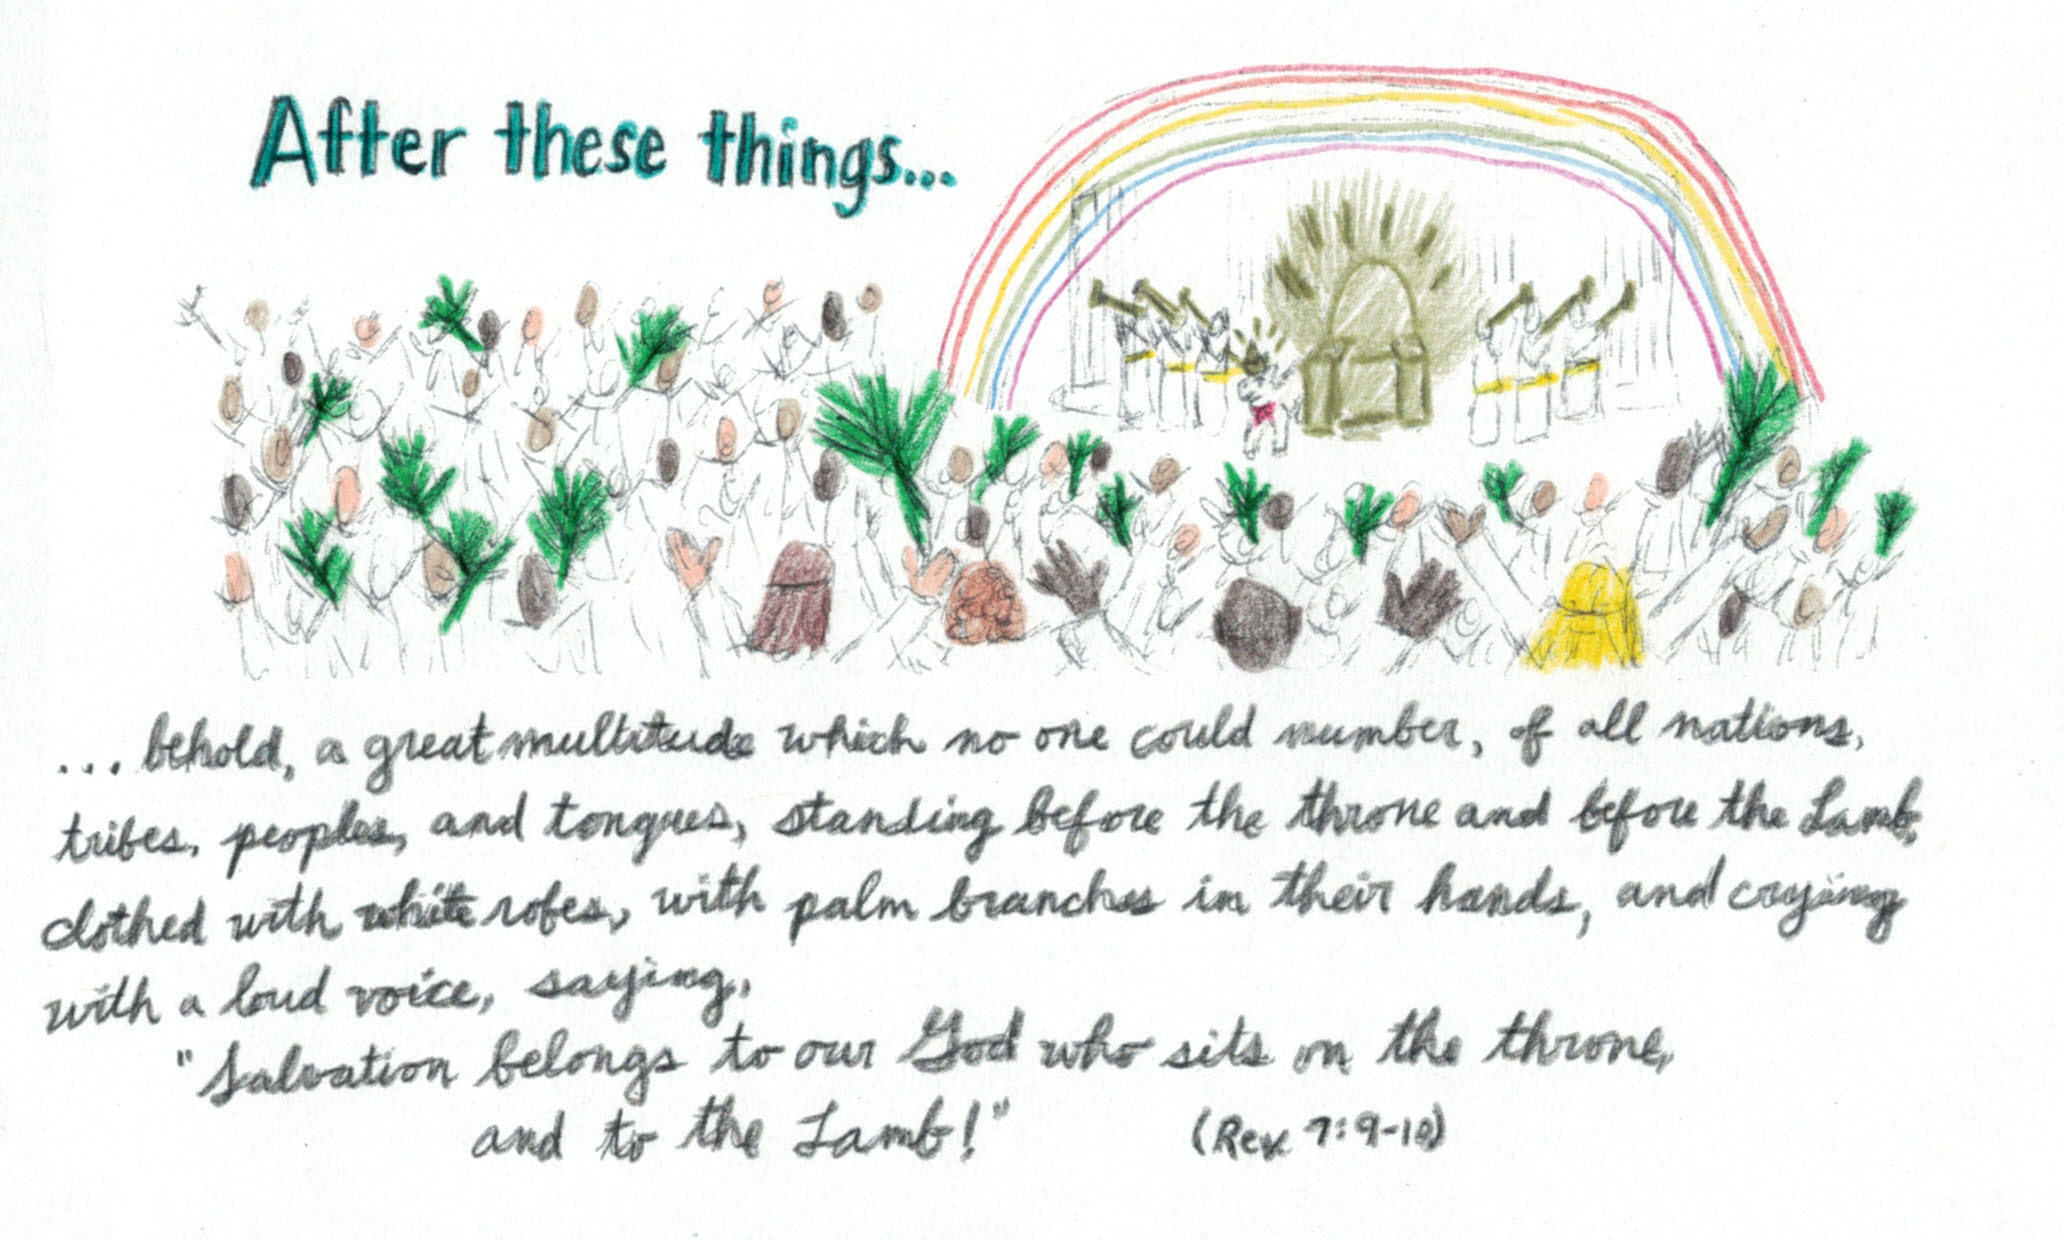 After these things...
... behold, a great multitude which no one could number, of all nations,
tribes, peoples, and tongues, standing before the throne and before the Lamb,
clothed with white robes, with palm branches in their hands, and crying
with a loud voice, saying,
"Salvation belongs to our God who sits on the throne,
and to the Lamb!" (Rev. 7:9-10)